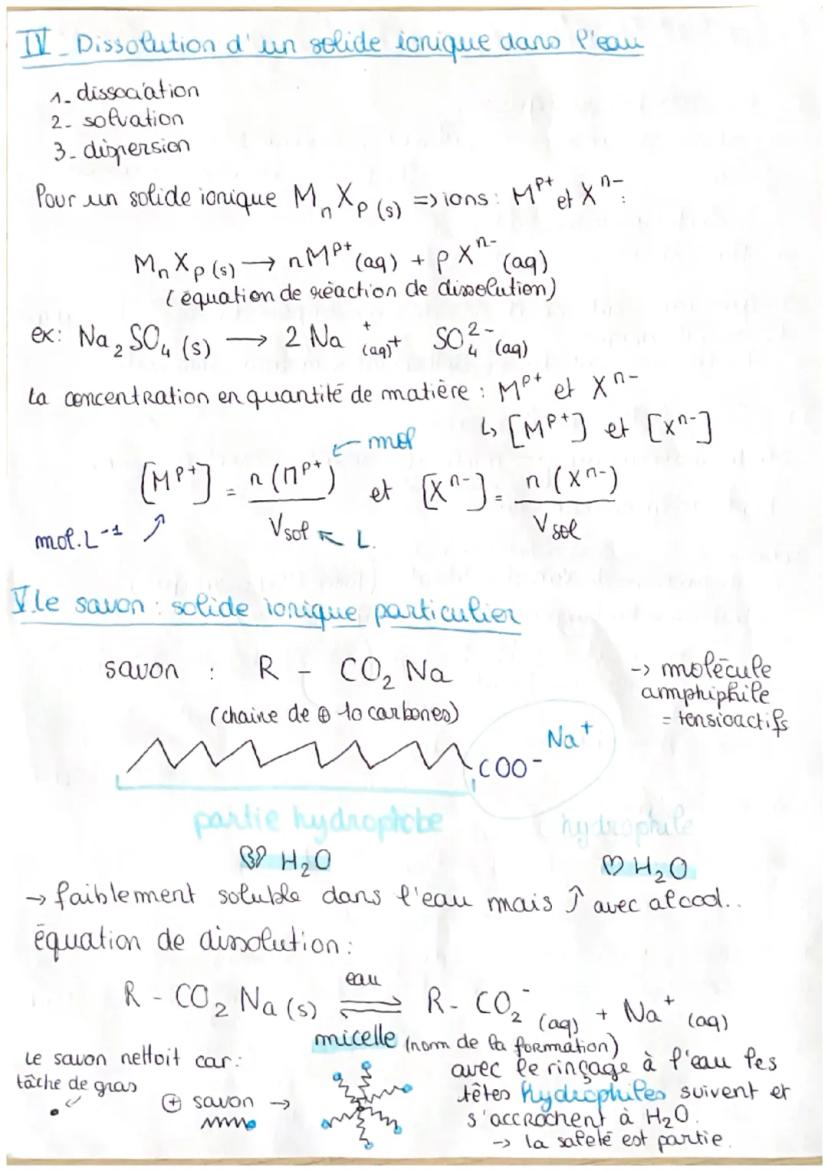 IV - Dissolution d'un solide ionique dans l'eau
1- dissociation
2- solvation
3- dispersion
Pour un solide ionique MₙXₚ (s) => ions : Mᵖ⁺ et Xⁿ⁻.
MₙXₚ (s) → nMᵖ⁺ (aq) + pXⁿ⁻ (aq)
(équation de réaction de dissolution)
ex: Na₂SO₄ (s) → 2 Na⁺ (aq) + SO₄²⁻ (aq)
La concentration en quantité de matière : Mᵖ⁺ et Xⁿ⁻
↳ [Mᵖ⁺] et [Xⁿ⁻]
← mol
[Mᵖ⁺] = n(Mᵖ⁺) / Vsol et [Xⁿ⁻] = n(Xⁿ⁻) / Vsol
mol.L⁻¹ ↗ ↖ L.
V. Le savon : solide ionique particulier
savon : R - CO₂ Na
(chaine de ⊕ 10 carbones)
-> molécule
amphiphile
= tensioactifs
COO⁻ Na⁺
partie hydrophobe hydrophile
H₂O ♡ H₂O
→ faiblement soluble dans l'eau mais ↑ avec alcool..
équation de dissolution :
R - CO₂ Na (s) ⇌ eau R - CO₂⁻ (aq) + Na⁺ (aq)
micelle (nom de la formation)
Le savon nettoit car :
tâche de gras
⊕ savon →
avec le rinçage à l'eau les
têtes hydrophiles suivent et
s'accrochent à H₂O.
-> la saleté est partie.